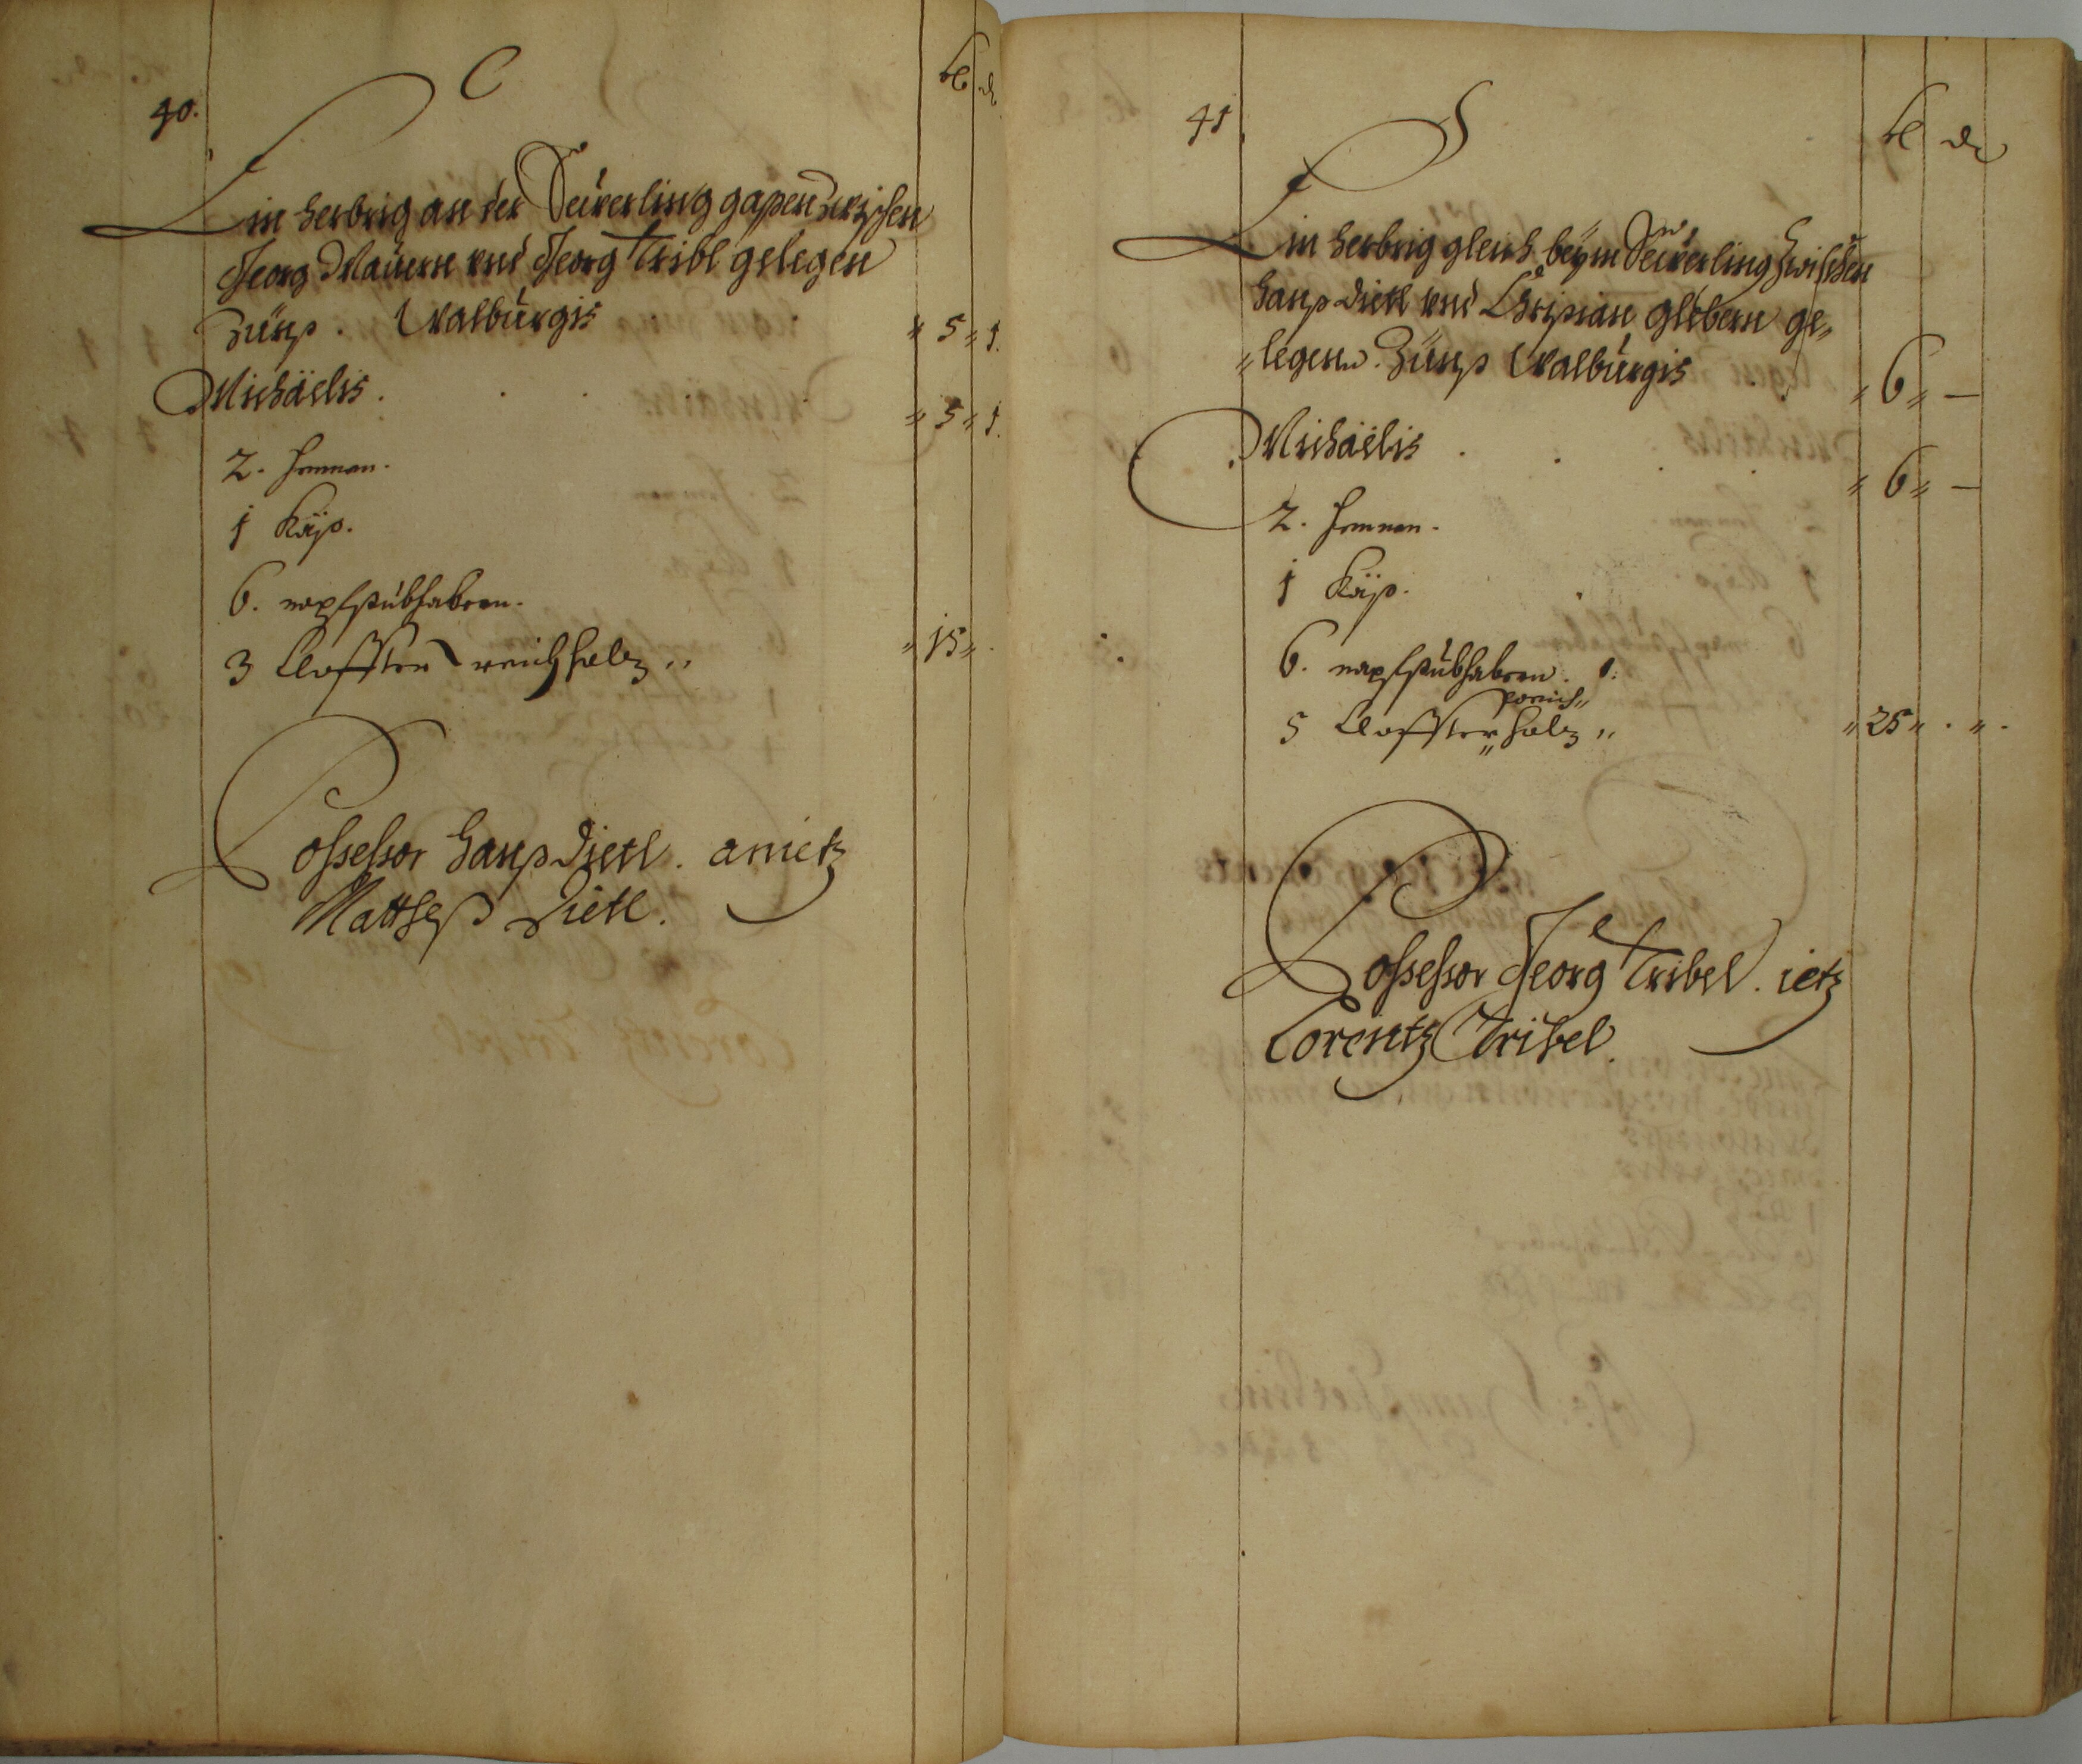 40.
ß d
Ein herbrig an der Seüerling gaßen zwischen
Georg Maüern vnd Georg Tribl gelegen
Zünß. Walbürgis " 5 " 1.
Michäelis. " 5 " 1.
2. hennen.
1 Käß.
6. napfstübhabern.
3 Claffter reichholz " " 15 "
Possessor Hanß Dietl. a nietz
Mattheß Dietl.
41
ß d
Ein herbrig gleich beÿm Seüerling Zwischen
Hanß Dietl vnd Christian glöbern ge"
"legen. Zünß Walbürgis " 6 " —
Michäelis " 6 " —
2. hennen.
1 Käß.
6. napfstübhabern.
5 Claffter " holz " " 25 "
Possessor Georg Tribel. ietz
Lorentz Tribel.